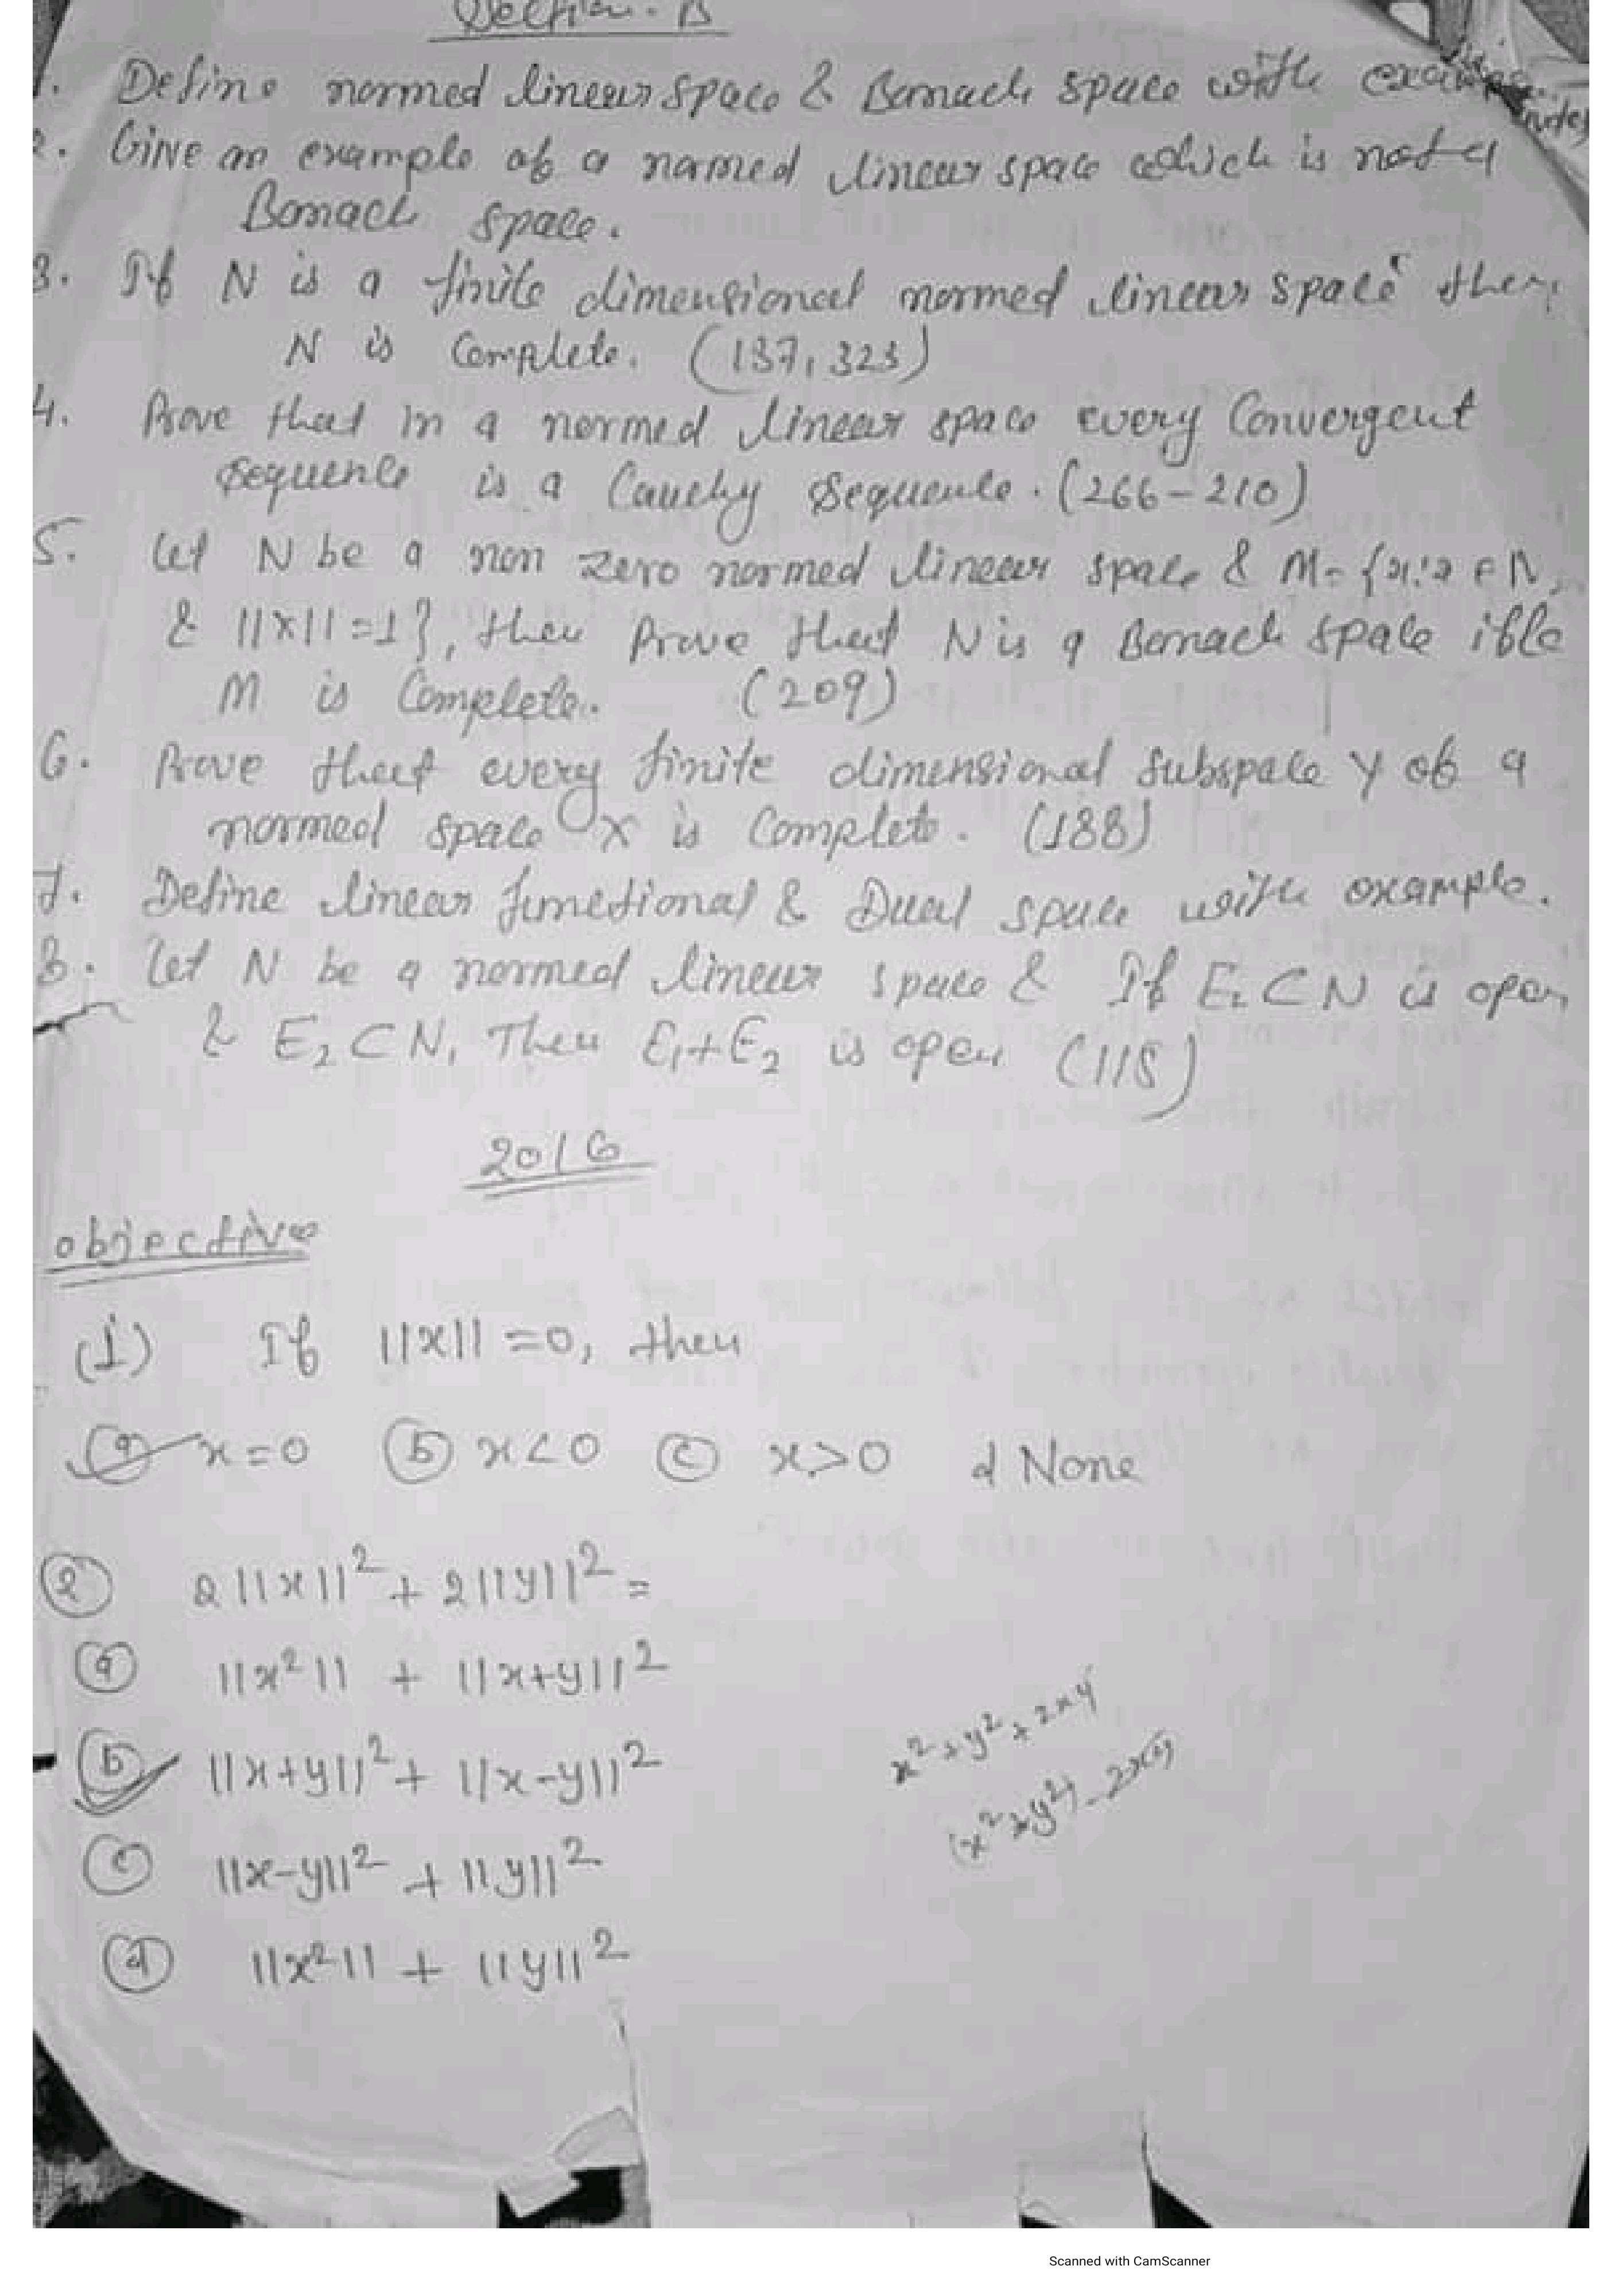 Section - B
1. Define normed linear space & Banach space with
2. Give an example of a normed linear space which is not a
Banach space.
3. If N is a finite dimensional normed linear space then
N is Complete. (187, 323)
4. Prove that in a normed linear space every Convergent
Sequence is a Cauchy Sequence. (266-210)
5. Let N be a non zero normed linear space & M = {x:x ∈ N,
& ||x||=1}, then Prove that N is a Banach space iff
M is Complete. (209)
6. Prove that every finite dimensional subspace Y of a
normed space X is Complete. (188)
7. Define linear functional & Dual space with example.
8. Let N be a normed linear space & If E₁ ⊂ N is open
& E₂ ⊂ N, Then E₁+E₂ is open (115)
2016
objective
(1) If ||x|| = 0, then
(a) x=0 (b) x<0 (c) x>0 d None
(2) 2||x||² + 2||y||² =
(a) ||x²|| + ||x+y||²
(b) ||x+y||² + ||x-y||²
x²+y²+2xy
(x²+y²)-2xy
(c) ||x-y||² + ||y||²
(d) ||x²|| + ||y||²
Scanned with CamScanner